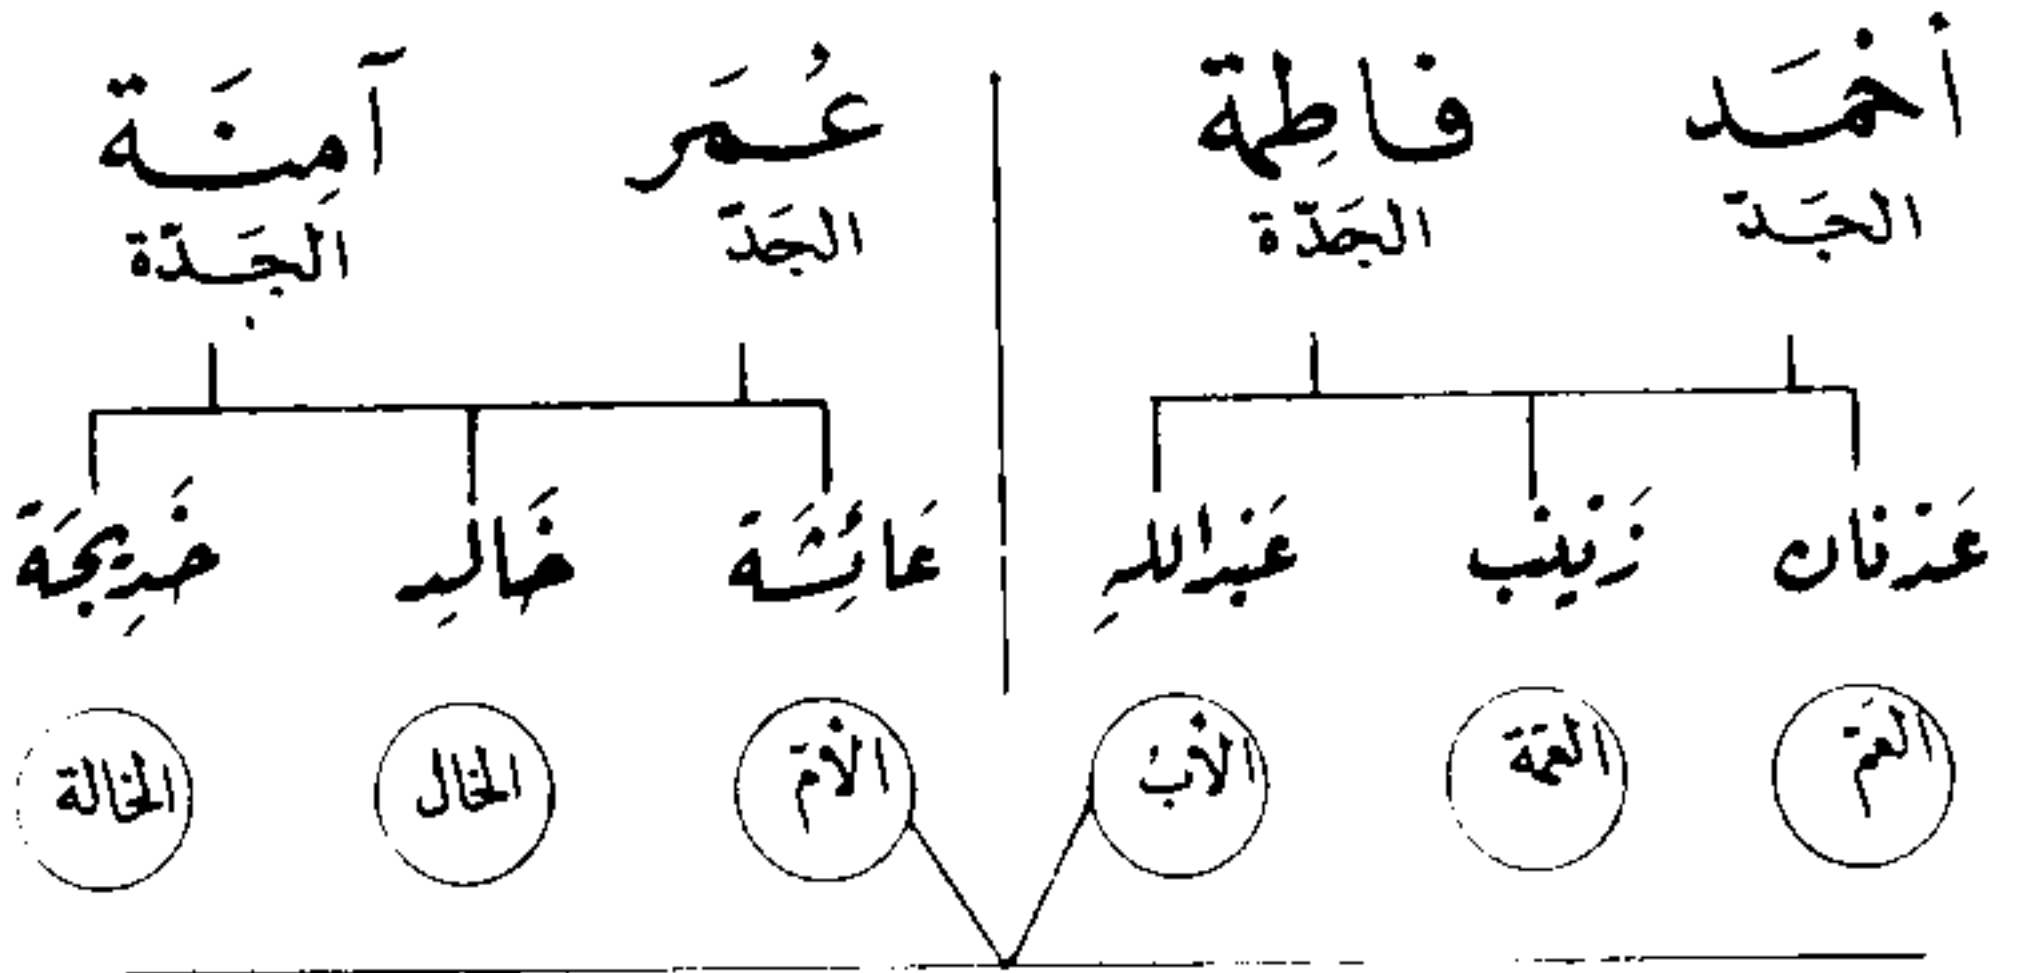 أَحْمَد فَاطِمَة عُمَر آمِنَة
الجَدّ الجَدّة الجَدّ الجَدّة
عَدْنان زَيْنَب عَبْدالله عَائِشَة خَالِد خَدِيجَة
العَمّ العَمّة الأَبُ الأُمّ الخال الخالة